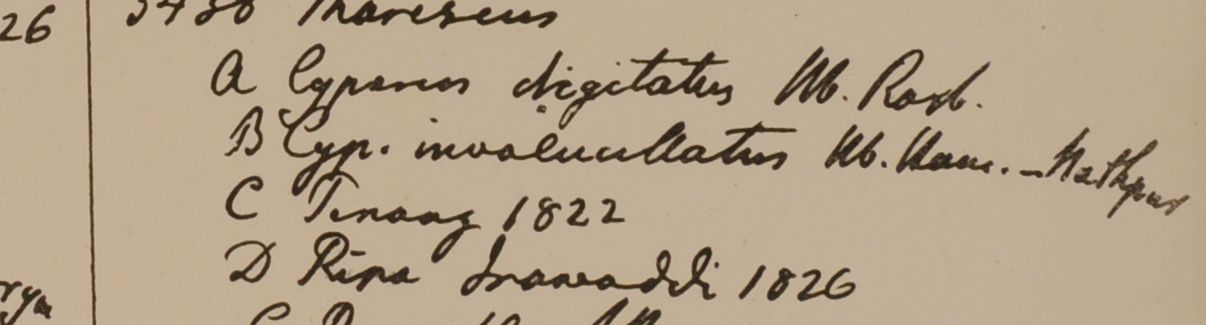 26
A Cyperus digitatus Hb. Roxb.
B Cyp. involucellatus Hb. Ham. - Nathpur
C Penang 1822
D Ripa Irawaddi 1826